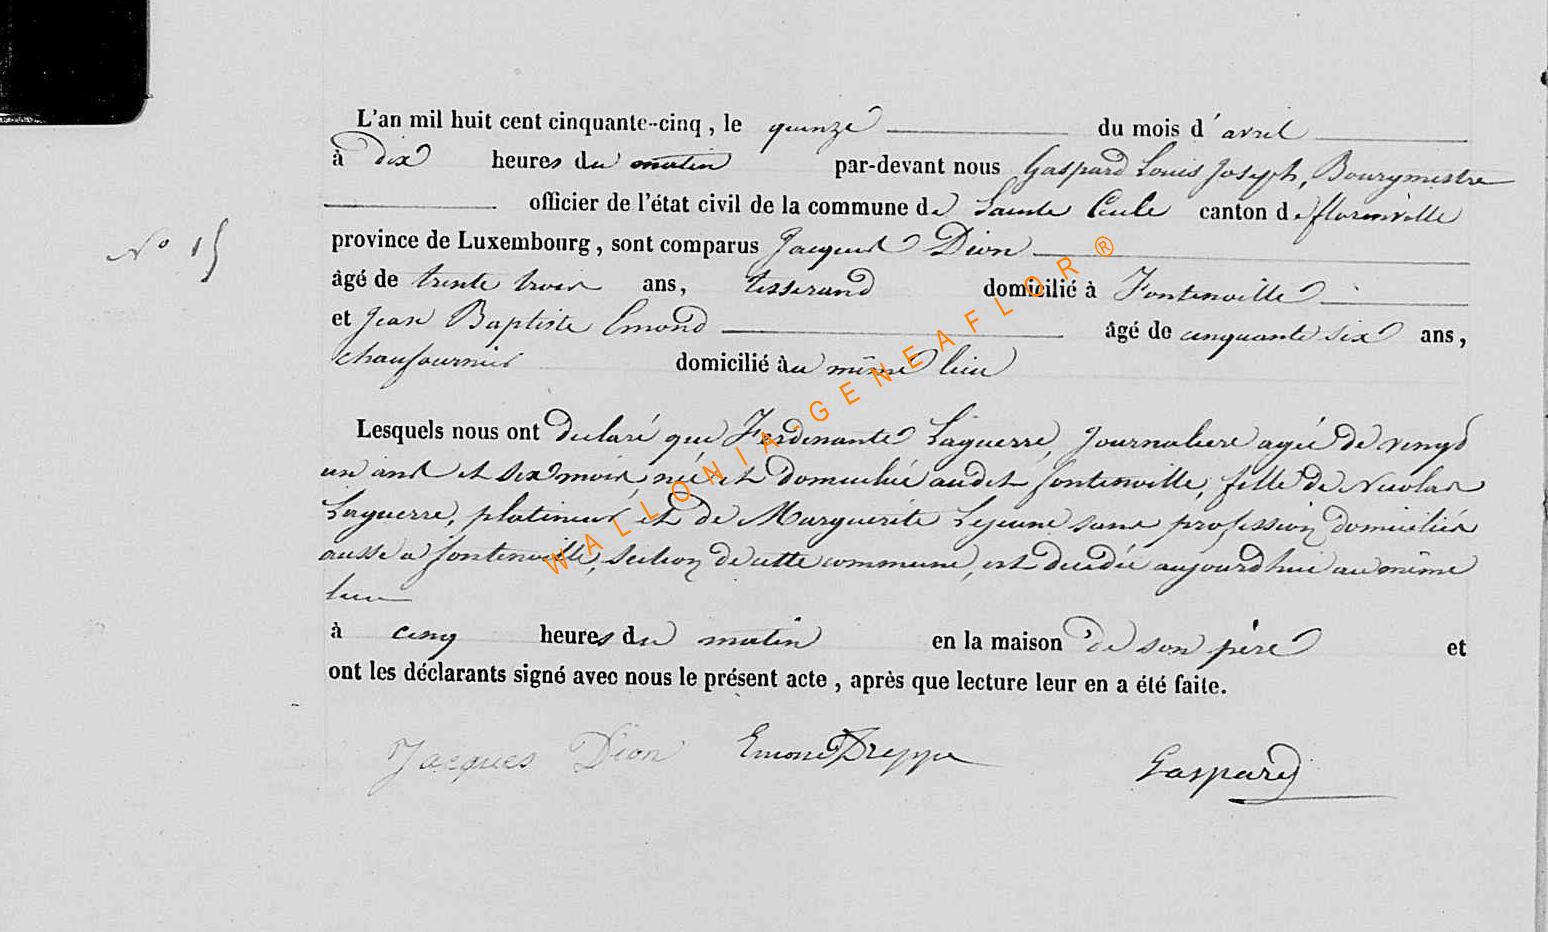 L'an mil huit cent cinquante-cinq, le quinze du mois d'avril
à dix heures du matin par-devant nous Gaspard Louis Joseph, Bourgmestre
officier de l'état civil de la commune de Sainte Cecile canton de florenville
N° 15
province de Luxembourg, sont comparus Jacques Dion
âgé de trente trois ans, tisserand domicilié à Fontenoille
et Jean Baptiste Emond âgé de cinquante six ans,
chaufournier domicilié au même lieu
Lesquels nous ont declaré que Ferdinante Laguerre, Journaliere agée de vingt
un ans et six mois, née et domiciliée audit fontenoille, fille de Nicolas
Laguerre, platineur et de Marguerite Lejeune sans profession domiciliés
aussi a fontenoille, section de cette commune, est decedée aujourd'hui au même
lieu
à cinq heures du matin en la maison de son père et
ont les déclarants signé avec nous le présent acte, après que lecture leur en a été faite.
Jacques Dion Emond Gaspard
WALLONIA-GENEAFLOR®